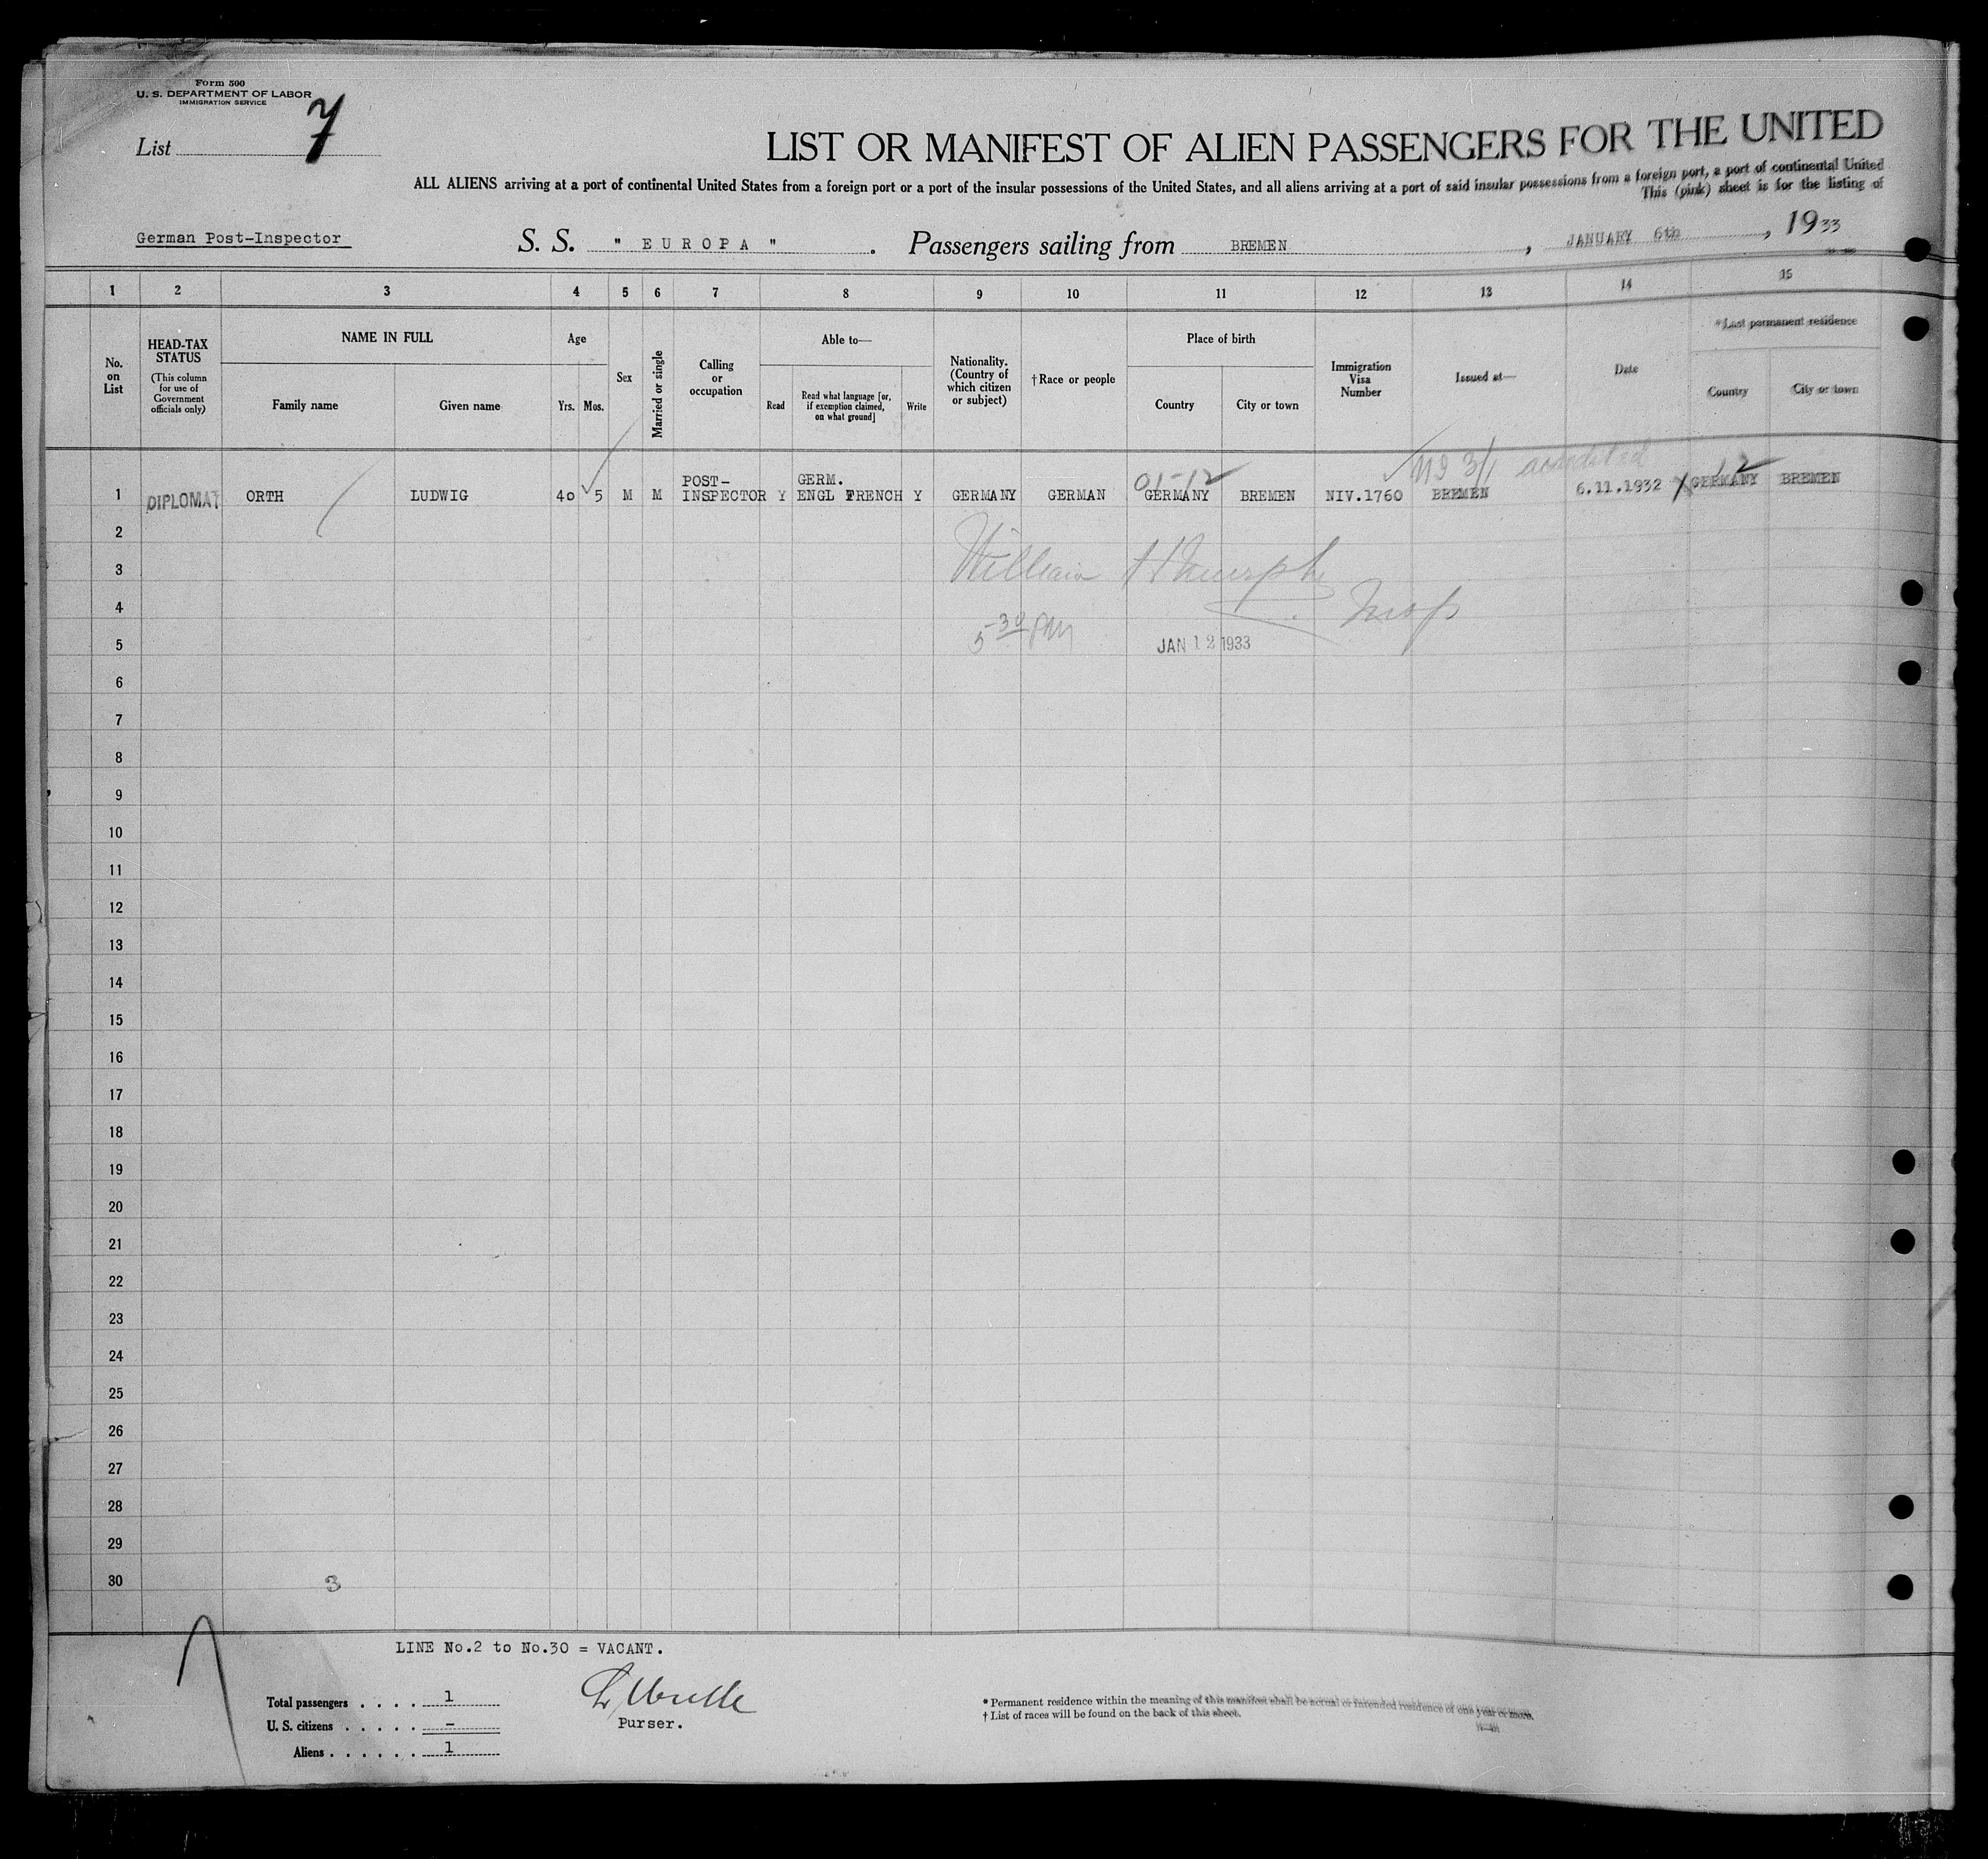 Form 500
U. S. DEPARTMENT OF LABOR
IMMIGRATION SERVICE
List 7
LIST OR MANIFEST OF ALIEN PASSENGERS FOR THE UNITED
ALL ALIENS arriving at a port of continental United States from a foreign port or a port of the insular possessions of the United States, and all aliens arriving at a port of said insular possessions from a foreign port, a port of continental United
This (pink) sheet is for the listing of
German Post-Inspector S. S. " E U R O P A " . Passengers sailing from BREMEN , JANUARY 6th , 1933
1 2 3 4 5 6 7 8 9 10 11 12 13 14 15
No. on List
HEAD-TAX STATUS
(This column for use of Government officials only)
NAME IN FULL
Family name Given name
Age
Yrs. Mos.
Sex
Married or single
Calling or occupation
Able to—
Read
Read what language [or, if exemption claimed, on what ground]
Write
Nationality. (Country of which citizen or subject)
†Race or people
Place of birth
Country City or town
Immigration Visa Number
Issued at—
Date
*Last permanent residence
Country City or town
1 DIPLOMAT ORTH LUDWIG 40 5 M M POST-INSPECTOR Y GERM. ENGL FRENCH Y GERMANY GERMAN 01-12 GERMANY BREMEN NIV.1760 BREMEN 6.11.1932 X GERMANY 12 BREMEN
2
3 William
4
5 5 30 PM JAN 12 1933
6
7
8
9
10
11
12
13
14
15
16
17
18
19
20
21
22
23
24
25
26
27
28
29
30 3
LINE No.2 to No.30 = VACANT.
Total passengers . . . . 1
U. S. citizens . . . . . –
Aliens . . . . . . 1
Purser.
* Permanent residence within the meaning of this manifest shall be actual or intended residence of one year or more.
† List of races will be found on the back of this sheet.